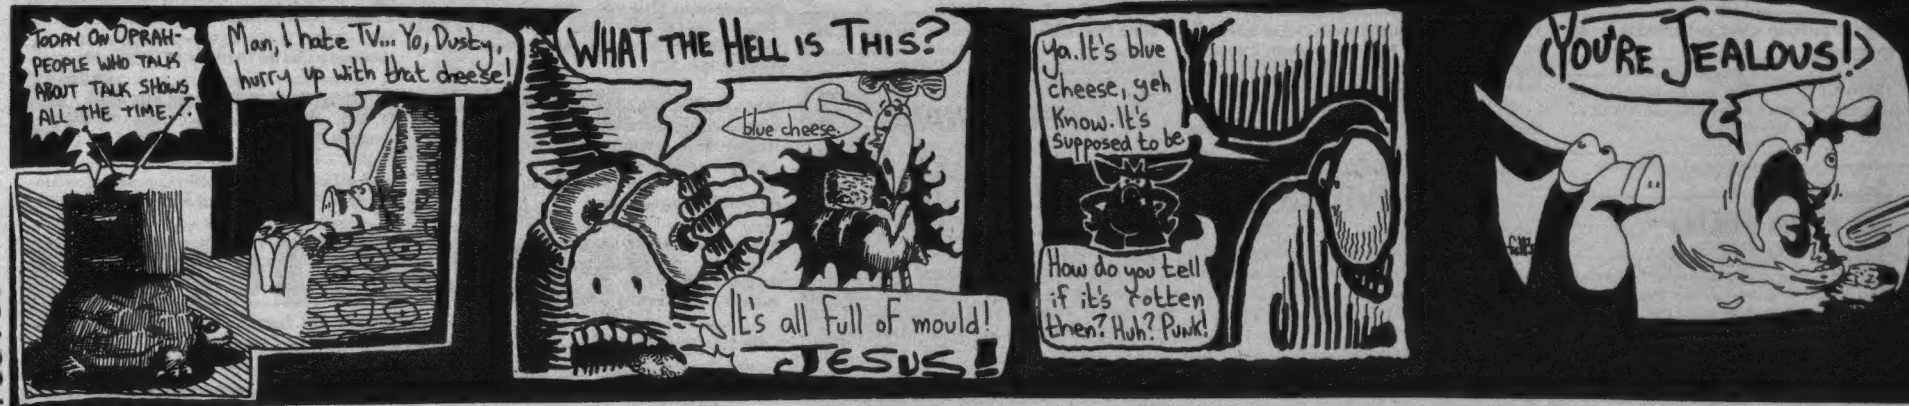 TODAY ON OPRAH-
PEOPLE WHO TALK
ABOUT TALK SHOWS
ALL THE TIME...
Man, I hate TV... Yo, Dusty,
hurry up with that cheese!
WHAT THE HELL IS THIS?
blue cheese.
It's all full of mould!
JESUS!
ya. It's blue
cheese, yeh
know. It's
supposed to be
How do you tell
if it's rotten
then? Huh? Punk!
(YOU'RE JEALOUS!)